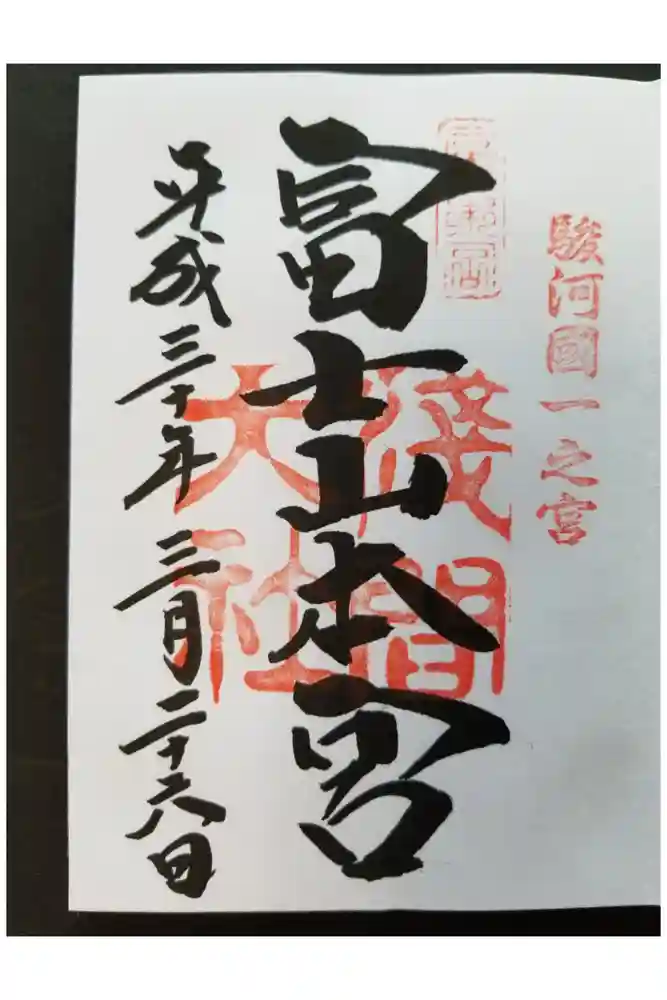 駿河國一之宮
富士山本宮
浅間
大社
平成三十年三月二十六日